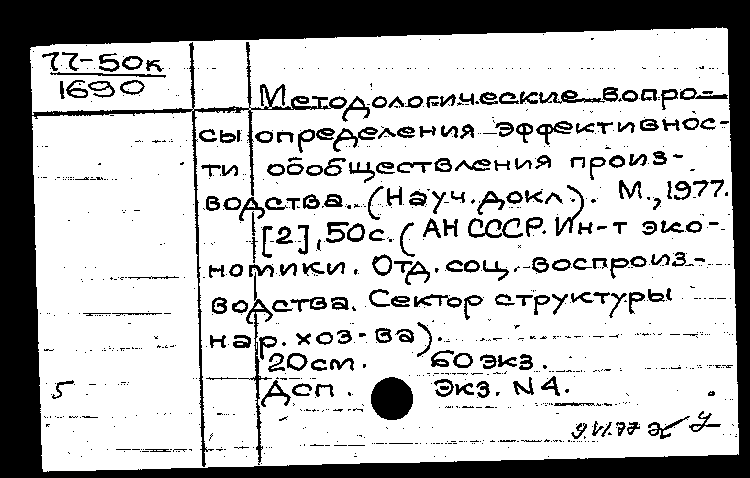 77-50к
1690
Методологические вопро-
сы определения эффективнос-
ти обобществления произ-
водства. (Науч. докл.). М., 1977.
[2], 50с. (АН СССР. Ин-т эко-
номики. Отд. соц. воспроиз-
водства. Сектор структуры
нар. хоз-ва).
20см. 60 экз.
5 Доп. Экз. N 4.
9.VI.77